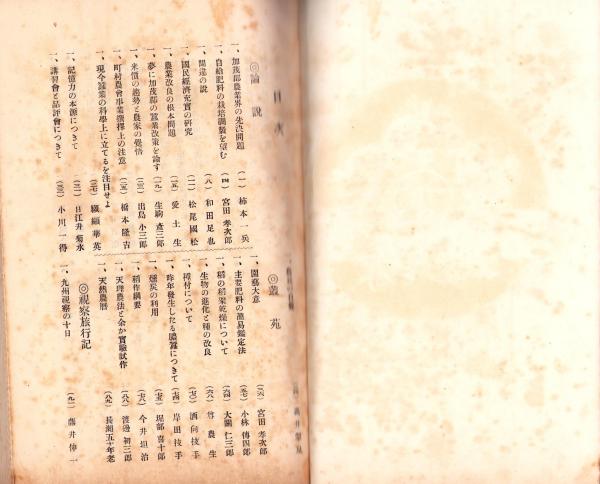 目次
◎論說
一、加茂郡農業界の先決問題 (一) 柿本一兵
一、自給肥料の栽培調製を望む (四) 宮田孝次郎
一、間違の說 (八) 和田足也
一、國民經濟充實の研究 (一二) 松尾國松
一、農業改良の根本問題 (一五) 愛土生
一、夢に加茂郡の蠶業改策を論す (一九) 生駒彥三郎
一、米價の趨勢と農家の覺悟 (二三) 出島小三郎
一、町村農會事業選擇上の注意 (二五) 橋本隆吉
一、現今蠶業の科學上に立てるを注目せよ (二七) 纐纈華英
一、記憶力の本源につきて (三一) 日江井菊水
一、講習會と品評會につきて (三三) 小川一得
◎叢苑
一、園藝大意 宮田孝次郎
一、主要肥料の簡易鑑定法 (五七) 小林傳四郎
一、稻の稻架乾燥について (六四) 大關仁三郎
一、生物の進化と種の改良 (六八) 農生
一、種付について 酒向技手
一、昨年發生したる膿蠶につきて (七四) 岸田技手
一、燻炭の利用 (七五) 堀部喜十郎
一、稻作綱要 (七八) 今井坦治
一、天理農法と余か實驗試作 (八八) 渡邊初三郎
一、天然農曆 (八九) 長瀨五十年老
◎視察旅行記
一、九州視察の十日 (九一) 藤井傳一